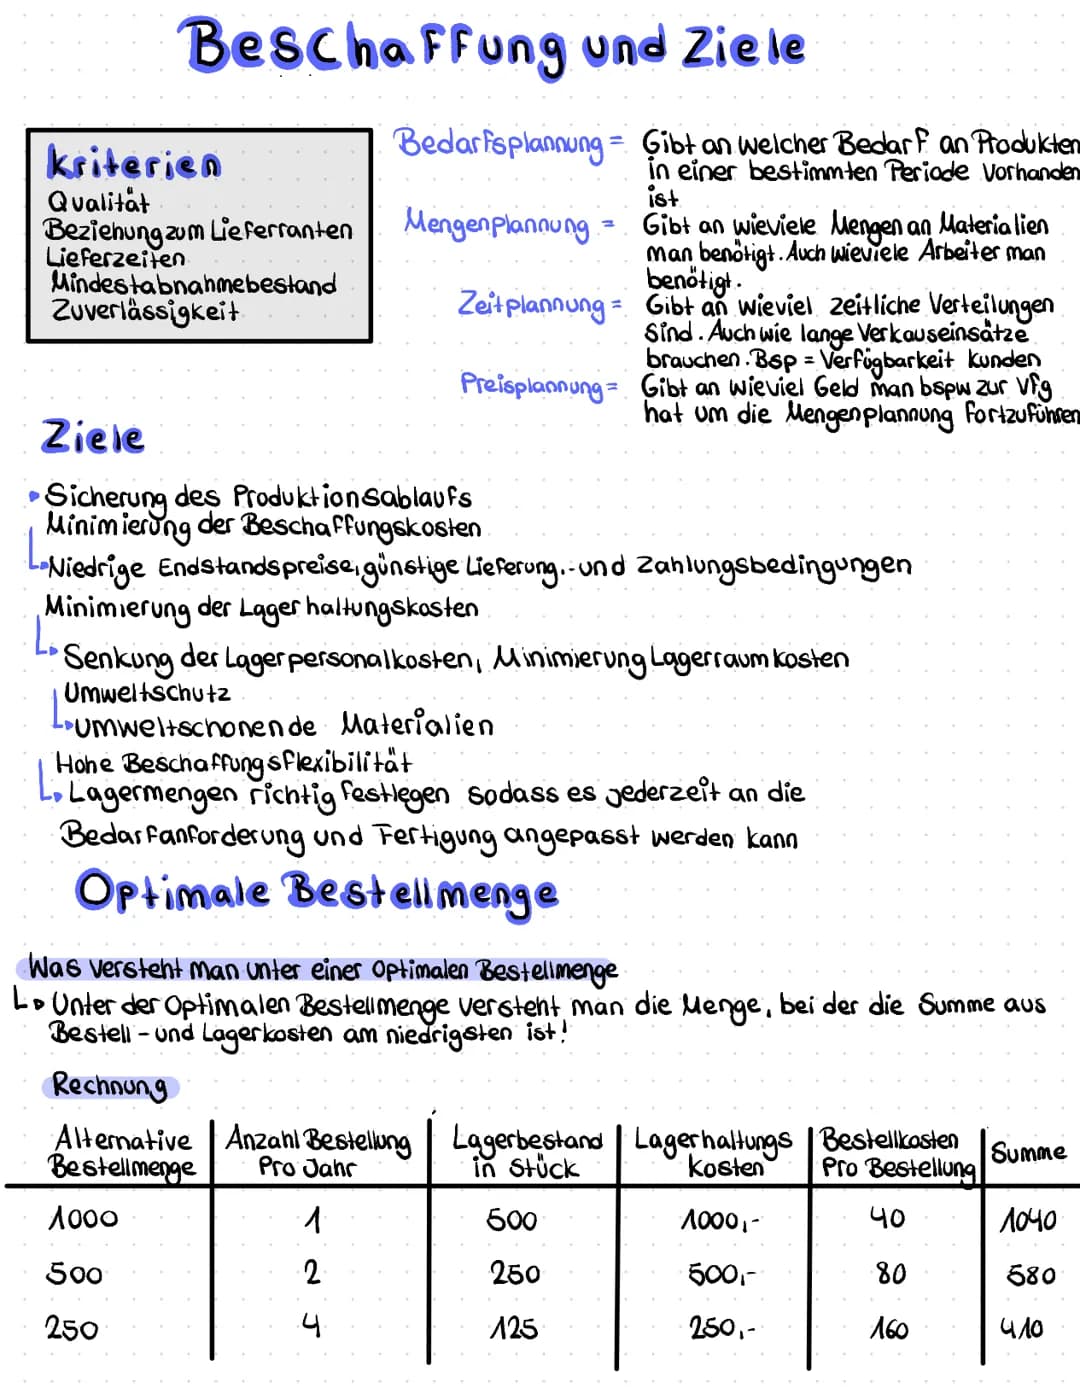 Beschaffung und Ziele
Kriterien
Qualität
Beziehung zum Lieferranten
Lieferzeiten
Mindestabnahmebestand
Zuverlässigkeit
Bedarfsplannung = Gibt an welcher Bedarf an Produkten
in einer bestimmten Periode vorhanden
ist
Mengenplannung = Gibt an wieviele Mengen an Materialien
man benötigt. Auch wieviele Arbeiter man
benötigt.
Zeitplannung = Gibt an wieviel zeitliche Verteilungen
sind. Auch wie lange Verkauseinsätze
brauchen. Bsp = Verfügbarkeit Kunden
Preisplannung = Gibt an wieviel Geld man bspw zur Vfg
hat um die Mengenplannung fortzuführen
Ziele
Sicherung des Produktionsablaufs
Minimierung der Beschaffungskosten
Niedrige Endstandspreise, günstige Lieferung.-und Zahlungsbedingungen
Minimierung der Lagerhaltungskosten
Senkung der Lagerpersonalkosten, Minimierung Lagerraumkosten
Umweltschutz
umweltschonende Materialien
Hohe Beschaffungsflexibilität
Lagermengen richtig festlegen sodass es jederzeit an die
Bedarfanforderung und Fertigung angepasst werden kann
Optimale Bestellmenge
Was versteht man unter einer Optimalen Bestellmenge
Unter der Optimalen Bestellmenge versteht man die Menge, bei der die Summe aus
Bestell-und Lagerkosten am niedrigsten ist!
Rechnung
Alternative Bestellmenge | Anzahl Bestellung Pro Jahr | Lagerbestand in Stück | Lagerhaltungs kosten | Bestellkosten Pro Bestellung | Summe
1000 1 500 1000,- 40 1040
500 2 250 500,- 80 580
250 4 125 250,- 160 410